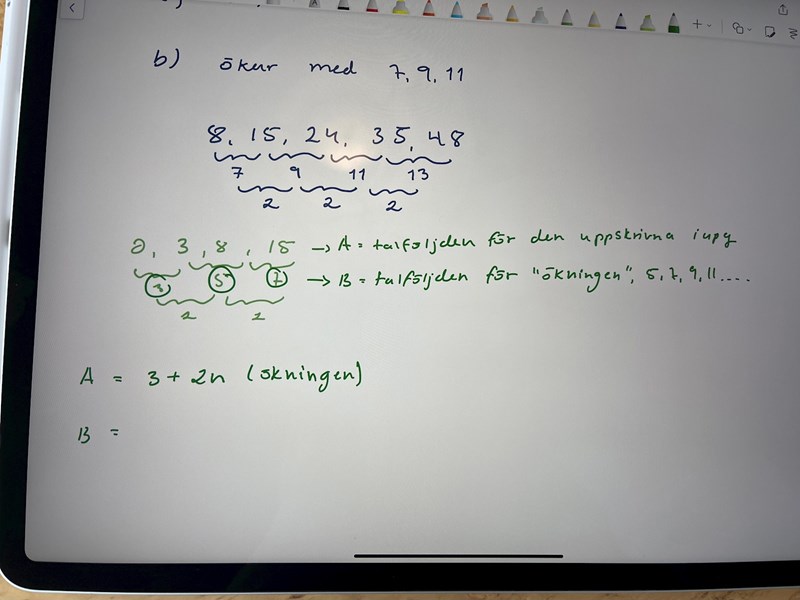 b) ökar med 7, 9, 11
8, 15, 24, 35, 48
7 9 11 13
2 2 2
0, 3, 8, 15 → A = talföljden för den uppskrivna i upg
3 5 7 → B = talföljden för "ökningen", 5, 7, 9, 11....
2 2
A = 3 + 2n (ökningen)
B =